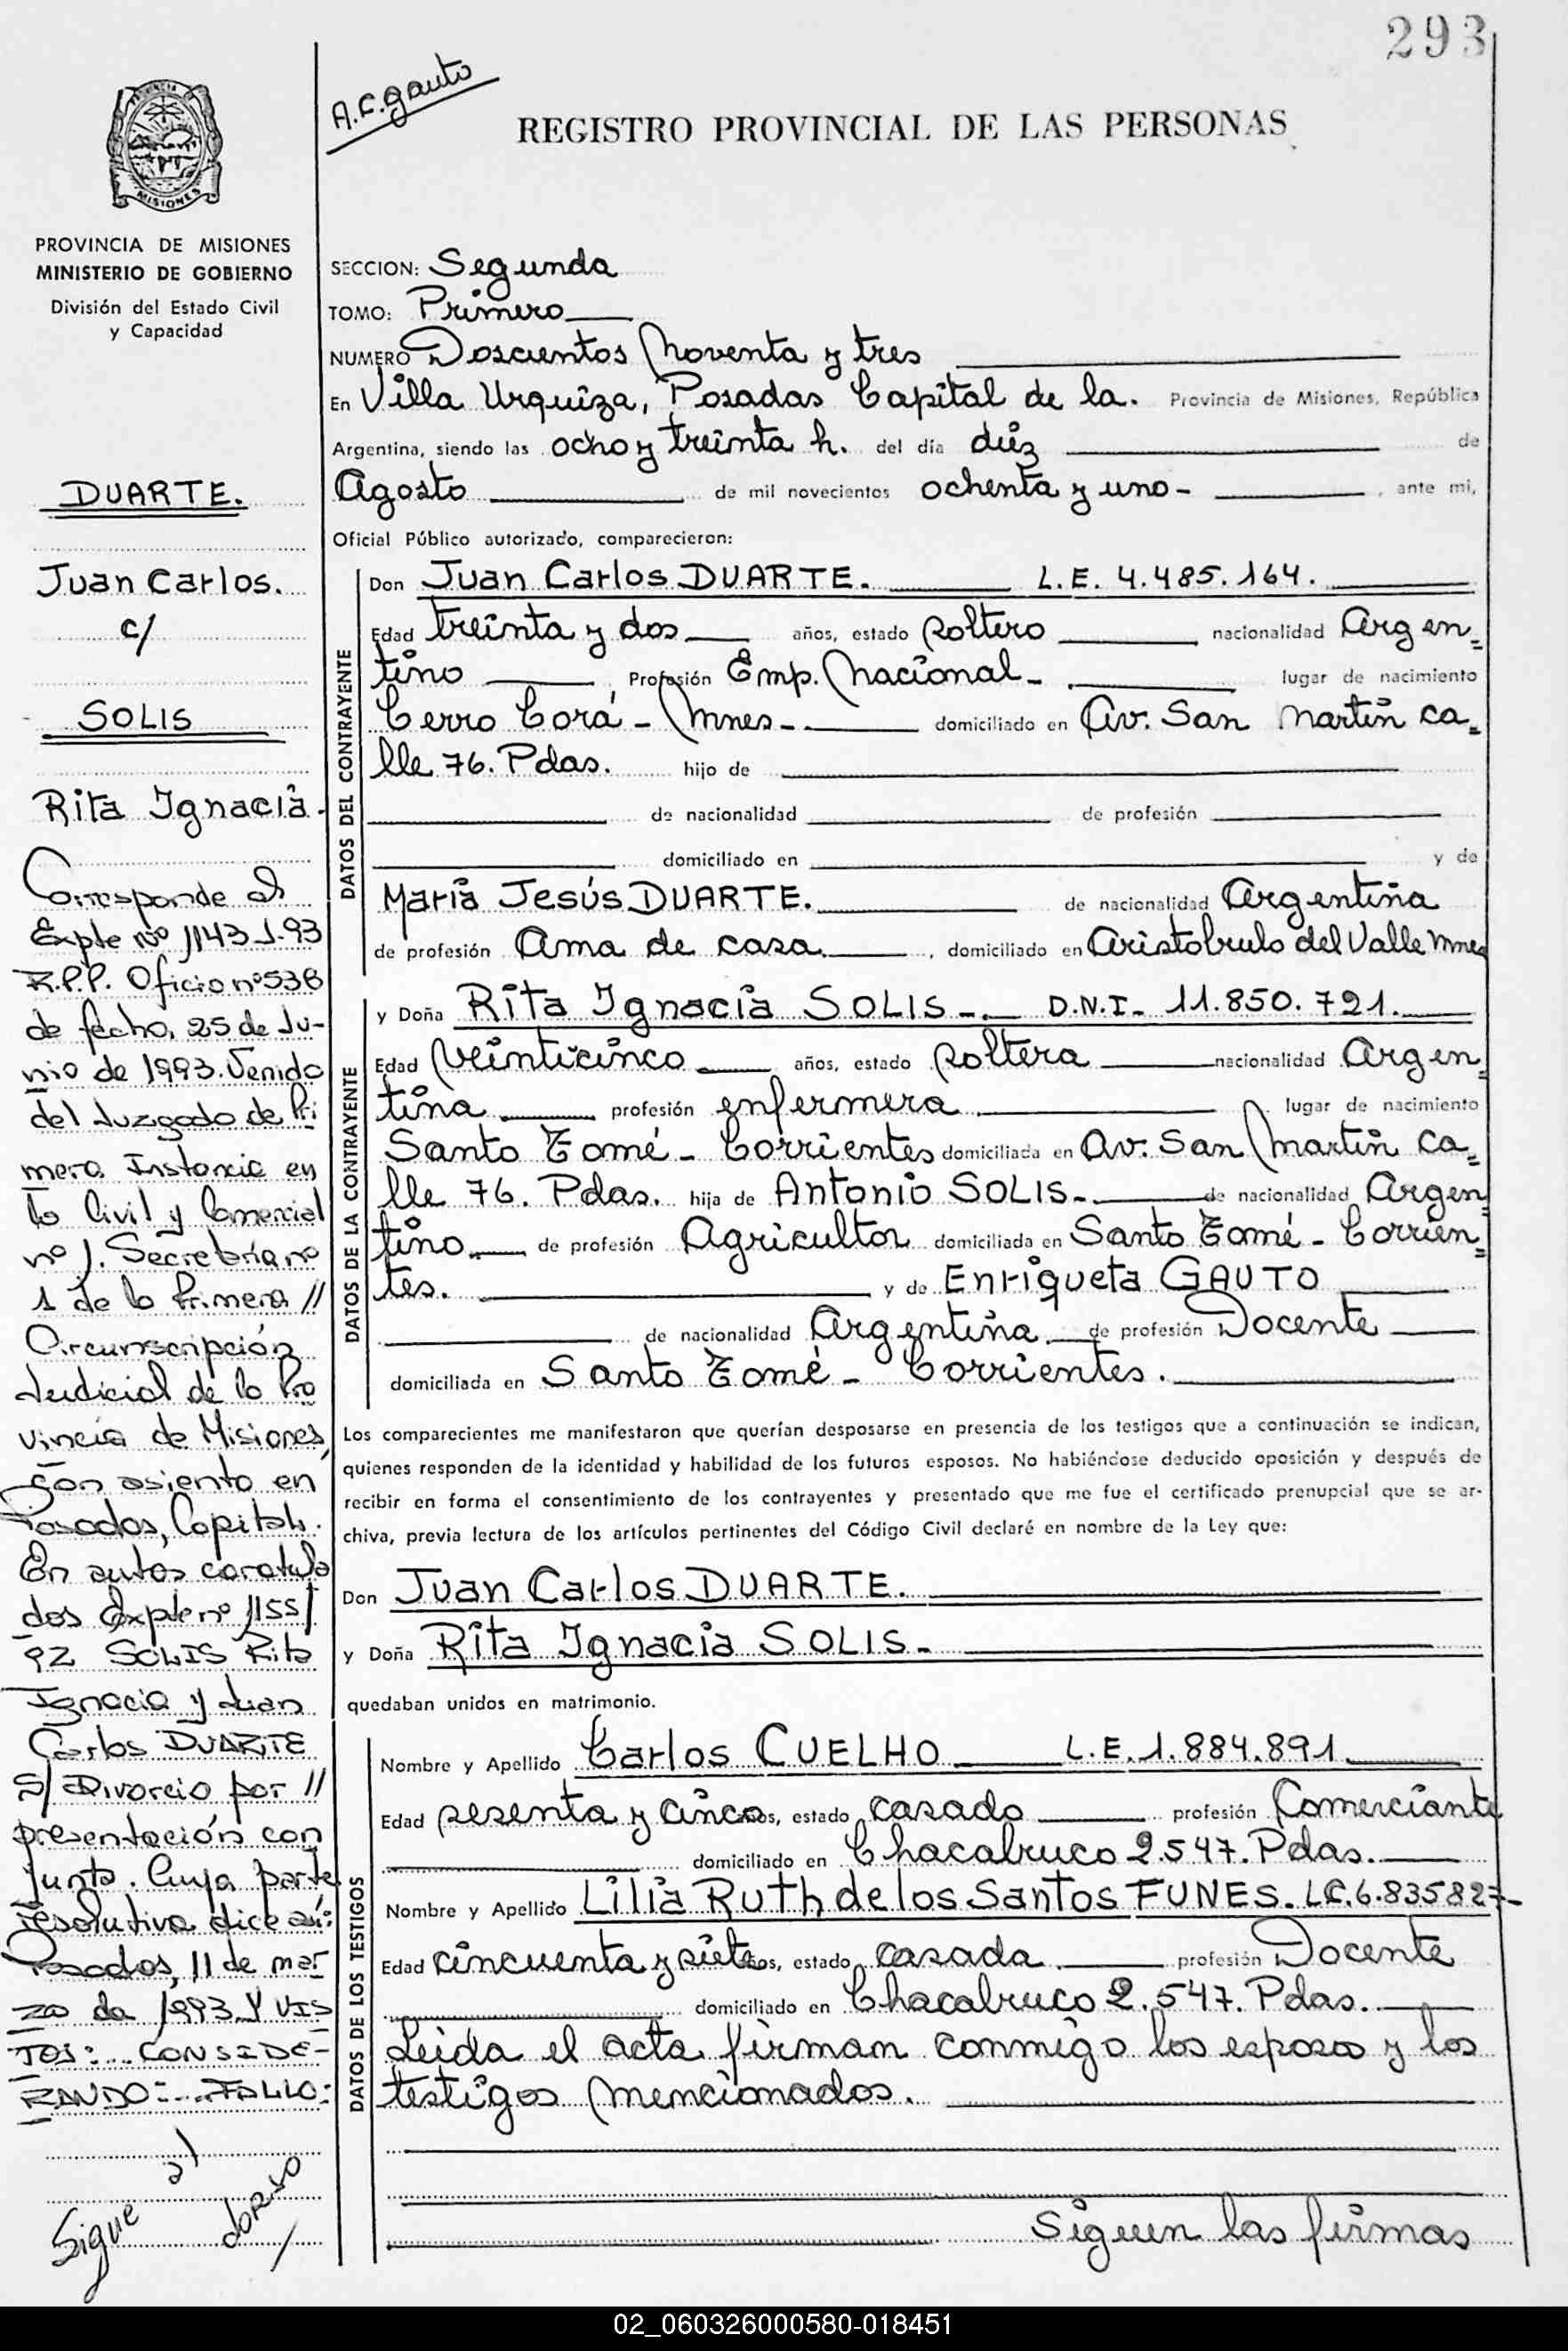 293
A.C. Gauto
REGISTRO PROVINCIAL DE LAS PERSONAS
MISIONES
PROVINCIA DE MISIONES
MINISTERIO DE GOBIERNO
División del Estado Civil
y Capacidad
DUARTE.
Juan Carlos.
c/
SOLIS
Rita Ignacia.
Corresponde al
Expte Nº 1143-J-93
R.P.P. Oficio nº 538
de fecha, 25 de Ju-
nio de 1993. Venido
del Juzgado de Pri
mera Instancia en
lo Civil y Comercial
nº 1. Secretaría nº
1 de la Primera //
Circunscripción
Judicial de la Pro
vincia de Misiones,
con asiento en
Posadas, Capital.
En autos caratula
dos Expte nº 1155/
92 SOLIS Rita
Ignacia y Juan
Carlos DUARTE
S/ Divorcio por //
presentación con
junta. Cuya parte
resolutiva dice así:
Posadas, 11 de mar
zo de 1993. Y VIS
TOS:... CONSIDE-
RANDO:... FALLO:
Sigue al dorso /
SECCION: Segunda
TOMO: Primero
NUMERO Doscientos Noventa y tres
En Villa Urquiza, Posadas Capital de la. Provincia de Misiones, República
Argentina, siendo las ocho y treinta h. del día diéz de
Agosto de mil novecientos ochenta y uno- , ante mi,
Oficial Público autorizado, comparecieron:
DATOS DEL CONTRAYENTE
Don Juan Carlos DUARTE. L.E. 4.485.164.
Edad treinta y dos años, estado soltero nacionalidad Argen=
tino Profesión Emp. Nacional- lugar de nacimiento
Cerro Corá - Mnes- domiciliado en Av. San Martín ca=
lle 76. Pdas. hijo de
de nacionalidad de profesión
domiciliado en y de
María Jesús DUARTE. de nacionalidad Argentina
de profesión Ama de casa , domiciliado en Aristobulo del Valle Mnes
DATOS DE LA CONTRAYENTE
y Doña Rita Ignacia SOLIS-. D.N.I- 11.850.721.
Edad Veinticinco años, estado soltera nacionalidad Argen=
tina profesión enfermera lugar de nacimiento
Santo Tomé - Corrientes domiciliada en Av. San Martín ca=
lle 76. Pdas. hija de Antonio SOLIS- de nacionalidad Argen
tino. de profesión Agricultor domiciliada en Santo Tomé - Corrien=
tes. y de Enriqueta GAUTO
de nacionalidad Argentina de profesión Docente
domiciliada en Santo Tomé - Corrientes.
Los comparecientes me manifestaron que querían desposarse en presencia de los testigos que a continuación se indican,
quienes responden de la identidad y habilidad de los futuros esposos. No habiéndose deducido oposición y después de
recibir en forma el consentimiento de los contrayentes y presentado que me fue el certificado prenupcial que se ar-
chiva, previa lectura de los artículos pertinentes del Código Civil declaré en nombre de la Ley que:
Don Juan Carlos DUARTE.
y Doña Rita Ignacia SOLIS-
quedaban unidos en matrimonio.
DATOS DE LOS TESTIGOS
Nombre y Apellido Carlos CUELHO L.E. 1.884.891
Edad sesenta y cinco años, estado casado profesión Comerciante
domiciliado en Chacabruco 2.547. Pdas.
Nombre y Apellido Lilia Ruth de los Santos FUNES. L.C. 6.835827-
Edad cincuenta y siete años, estado casada profesión Docente
domiciliado en Chacabruco 2.547. Pdas.
Leida el acta firman conmigo los esposos y los
testigos mencionados.
Siguen las firmas
02_060326000580-018451